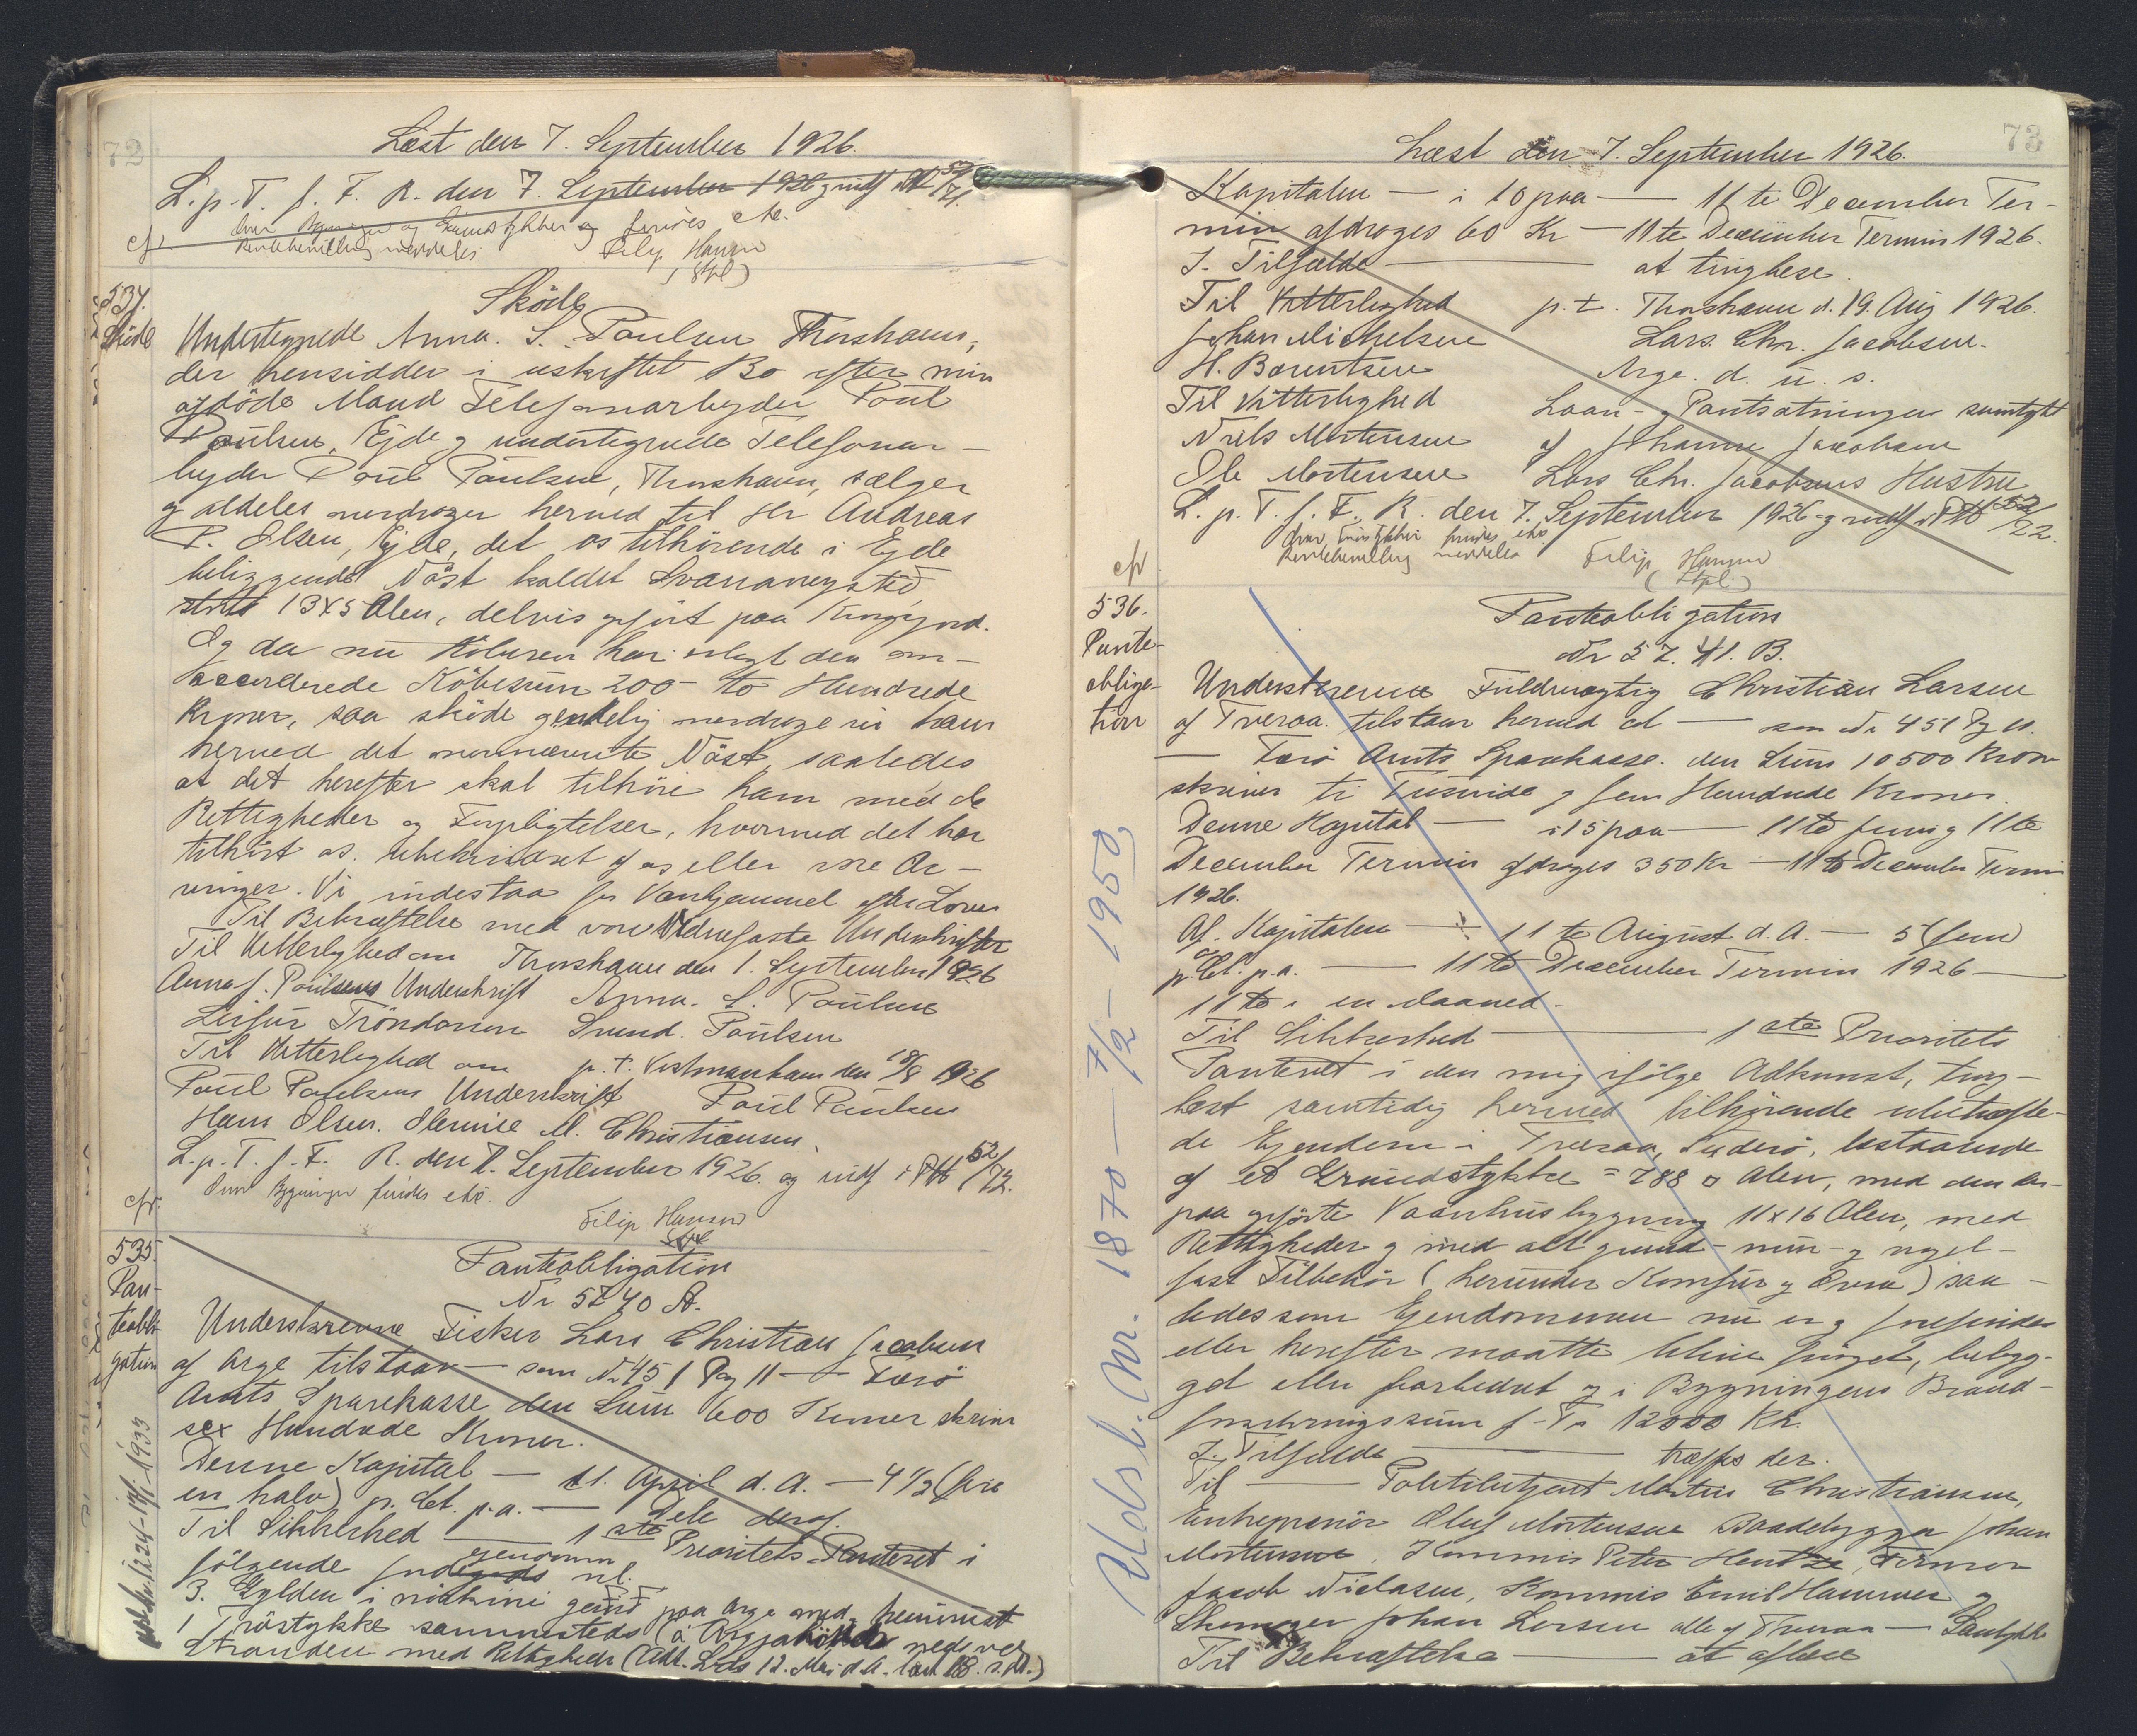 72
Læst den 7. September 1926.
L. p. T. f. F. R. den 7. September 1926 og indf i PtP 52/71.
Hver Bygninger og Grundstykker findes eke.
cfr. Rentebevilling meddeles Filip Hansen
(Stpl)
537.
Sköde
Sköde
Undertegnede Anna. S. Poulsen Thorshavn,
der hensidder i uskiftet Bo efter min
afdöde Mand Telefonarbejder Poul
Poulsen, Ejde og undertegnede Telefonar-
bejder Poul Poulsen, Thorshavn, sælger
og aldeles overdrager herved til Hr Andreas
P. Olsen, Ejde, det os tilhörende i Ejde
beliggende Nöst kaldet
13x5 Alen, delvis opfört paa Kongsjord.
Og da nu Köberen har erlagt den om-
accorderede Köbesum 200 - to Hundrede
Kroner, saa sköde og endelig overdrage vi ham
herved det ovennævnte Nöst, saaledes
at det herefter skal tilhöre ham med de
Rettigheder og Forpligtelser, hvormed det har
tilhört os. ubehindret af os eller vore Ar-
vinger. Vi indestaa for Vanhjemmel efter Loven
Til Bekræftelse med vore Vidnefaste Underskrifter
Til Vitterlighed om Thorshavn den 1. September 1926
Anna S. Poulsens Underskrift Anna. S. Poulsen
Leifur Tróndarson Svend. Poulsen
Til Vitterlighed om p. t. Vestmanhavn den 18/8 1926
Poul Poulsens Underskrift Poul Poulsen
Hans Olsen. Hennie M. Christiansen.
L. p. T. f. F. R. den 7. September 1926. og indf i PtP 52/72.
cfr. Hver Bygninger findes eke.
Filip Hansen
Stpl
535.
Pan-
teobli-
gation
Panteobligation
Nr 5240 A.
Underskrevne Fisker Lars Christian Jacobsen
af Arge tilstaar — som Nr 451 Pag 11 — Færö
Amts Sparekasse den Sum 600 Kroner skriver
sex Hundrede Kroner.
Denne Kapital — 11. April d. A. — 4 1/2 (fire
en halv) p. Ct. p. a. — Dele deraf.
Til Sikkerhed — 1ste Prioritets Panteret i
ejendomme
fölgende Jordegods nl.
3. Gylden i niukini gerid paa Arge med heimrust
1 Tröstykke sammesteds nede ved
Stranden med Rettigheder (Adk. Lds 12. Mai d. A. læst 18. s. M.)
73
Læst den 7. September 1926.
Kapitalen — i 10 paa — 11te December Ter-
min afdrages 60 Kr — 11te December Termin 1926.
I. Tilfælde — at tinglæse.
Til Vitterlighed p. t. Thorshavn d. 19. Aug 1926.
Johan Michelsen Lars. Chr. Jacobsen.
H. Barentsen Arge. d. u. s.
Til Vitterlighed Laan- og Pantsætningen samtykt
Niels Mortensen af Johanne Jacobsen
Ole Mortensen Lars Chr. Jacobsens Hustru
L. p. T. f. F. R. den 7. September 1926 og indf i PtP 52/22.
Hver Tröstykker findes eke
cfr Rentebevilling meddeles Filip Hansen
(Stpl)
536.
Pante-
obliga-
tion
Panteobligation
Nr 52. 41. B.
Underskrevne Fuldmægtig Christian Larsen
af Tveraa. tilstaar herved at — som Nr 451 Pg 11.
— Færö Amts Sparekasse. den Sum 10500 Kroner
skriver ti Tusinde og fem Hundrede Kroner.
Denne Kapital — i 15 paa — 11te Juni og 11te
December Termin afdrages 350 Kr — 11te December Termin
1926.
Af. Kapitalen — 11te August d. A. — 5 (fem)
p. Ct. p. a. — 11te December Termin 1926 —
11te i en Maaned.
Til Sikkerhed — 1ste Prioritets
Panteret i den mig ifölge Adkomst, ting-
læst samtidig hermed tilhörende ubehæfte-
de Ejendom i Tveraa, Suderö, bestaaende
af et Grundstykke = 788 □ Alen, med den der-
paa opförte Vaanhusbygning 11x16 Alen, med
Rettigheder og med alt grund- mur- og nagel-
fast Tilbehör (herunder Komfur og Ovne) saa-
ledes som Ejendommen nu er og forefindes
eller herefter maatte blive foröget, bebyg-
get eller forbedret og i Bygningens Brand-
forsikringssum f. T. 12000 Kr.
I. Tilfælde — træffes der.
Til — Politibetjent Morten Christiansen,
Entreprenör Oluf Mortensen Baadebygger Johan
Mortensen, Kommis Peter Hentze, Former
Jacob Nielsen, Kommis Emil Hammer og
Skomager Johan Larsen alle af Tveraa — Samtykke
Til Bekræftelse — at aflæse
Udsl. Nr. 1870 — 7/2 - 1950